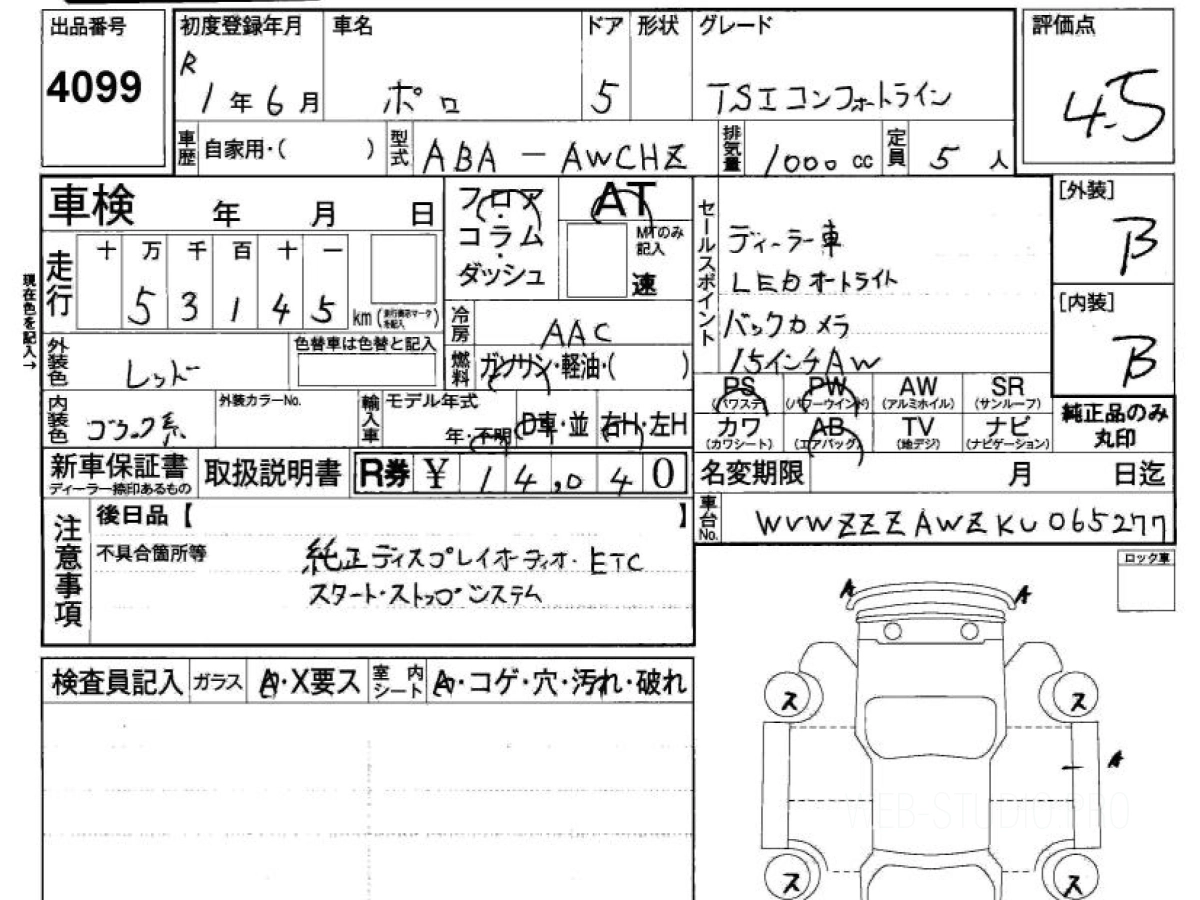 出品番号
4099
初度登録年月
R
1年6月
車名
ポロ
ドア
5
形状
グレード
TSIコンフォートライン
評価点
4.5
車歴
自家用・( )
型式
ABA-AWCHZ
排気量
1000 cc
定員
5人
車検 年 月 日
現在色を記入→
走行
十 万 千 百 十 一
5 3 1 4 5 km
フロア
・
コラム
・
ダッシュ
AT
MTのみ
記入
速
冷房
AAC
燃料
ガソリン・軽油・( )
セールスポイント
ディーラー車
LEDオートライト
バックカメラ
15インチAW
[外装]
B
[内装]
B
外装色
レッド
色替車は色替と記入
内装色
ブラック系
外装カラーNo.
輸入車
モデル年式
年・不明
D車・並
右H・左H
PS
(パワステ)
PW
(パワーウインド)
AW
(アルミホイル)
SR
(サンルーフ)
カワ
(カワシート)
AB
(エアバッグ)
TV
(地デジ)
ナビ
(ナビゲーション)
純正品のみ
丸印
新車保証書
ディーラー捺印あるもの
取扱説明書
R券 ¥ 14,040
名変期限 月 日迄
車台No.
WVWZZZAWZKU065277
注意事項
後日品【 】
不具合箇所等
純正ディスプレイオーディオ・ETC
スタート・ストップシステム
ロック車
検査員記入
ガラス
A・X要ス
室内シート
A・コゲ・穴・汚れ・破れ
A
A
ス
ス
A
ス
ス
WEB-STUDIO.PRO